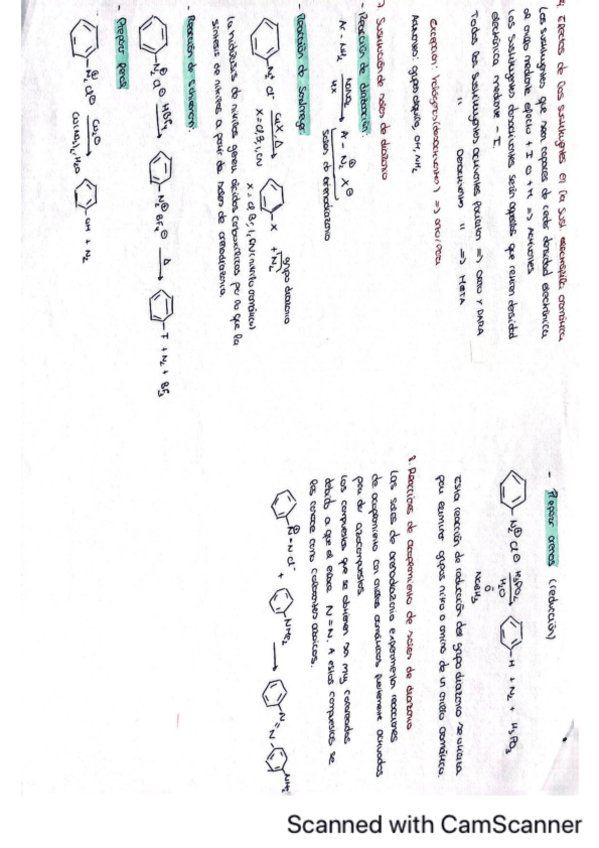 4. Efectos de los sustituyentes en la sust electrofílica aromática
Los sustituyentes que sean capaces de ceder densidad electrónica
al anillo mediante efecto + I o + M => Activantes
Los sustituyentes desactivantes serán aquellos que retiren densidad
electrónica mediante - I.
Todos los sustituyentes activantes posicionan => ORTO Y PARA
" " Desactivantes " => META
Excepción: halógenos (desactivantes) => orto/para
Activantes: grupos alquilo, OH, NH2
7. Sustitución de sales de diazonio
- Reacción de diazotación:
Ar - NH2 NaNO2 HX Ar - N2⊕ X⊖
sales de arenodiazonio
- Reacción de Sandmeyer
N2⊕ Cl⊖ CuX, Δ X + N2 grupo diazonio
X = Cl, Br, I, CN
La hidrólisis de nitrilos genera ácidos carboxílicos por lo que la
síntesis de nitrilos a partir de sales de arenodiazonio.
- Reacción de Schiemann:
N2⊕ Cl⊖ HBF4 N2⊕ BF4⊖ Δ F + N2 + BF3
- Preparar fenoles
N2⊕ Cl⊖ Cu2O Cu(NO3)2, H2O OH + N2
- Preparar arenos (reducción)
N2⊕ Cl⊖ H3PO2 H2O H + N2 + H3PO3
ó
NaBH4
Esta reacción de reducción del grupo diazonio se utiliza
para eliminar grupos nitro o amino de un anillo aromático.
8. Reacciones de acoplamiento de sales de diazonio
Las sales de arenodiazonio experimentan reacciones
de acoplamiento con anillos aromáticos fuertemente activados
para dar azocompuestos
Los compuestos que se obtienen son muy coloreados
debido a que el enlace N = N. A estos compuestos se
les conoce como colorantes azoicos.
N = N Cl⊖ + NMe2 N = N NMe2
Scanned with CamScanner